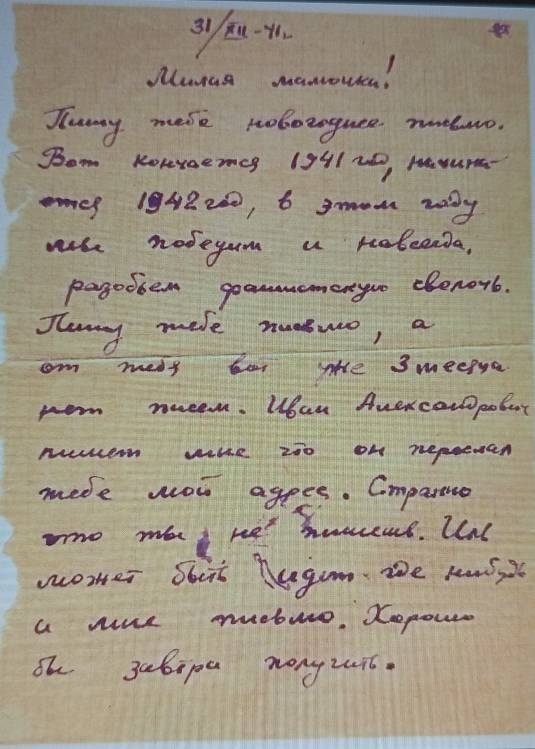 31/XII-41г.
Милая мамочка!
Пишу тебе новогоднее письмо.
Вот кончается 1941 год, начина-
ется 1942 год, в этом году
мы победим и навсегда,
разобьем фашистскую сволочь.
Пишу тебе письмо, а
от тебя вот уже 3 месяца
нет писем. Иван Александрович
пишет мне что он переслал
тебе мой адрес. Странно
что ты не пишешь. Иль
может быть идет где нибудь
и мне письмо. Хорошо
бы завтра получить.